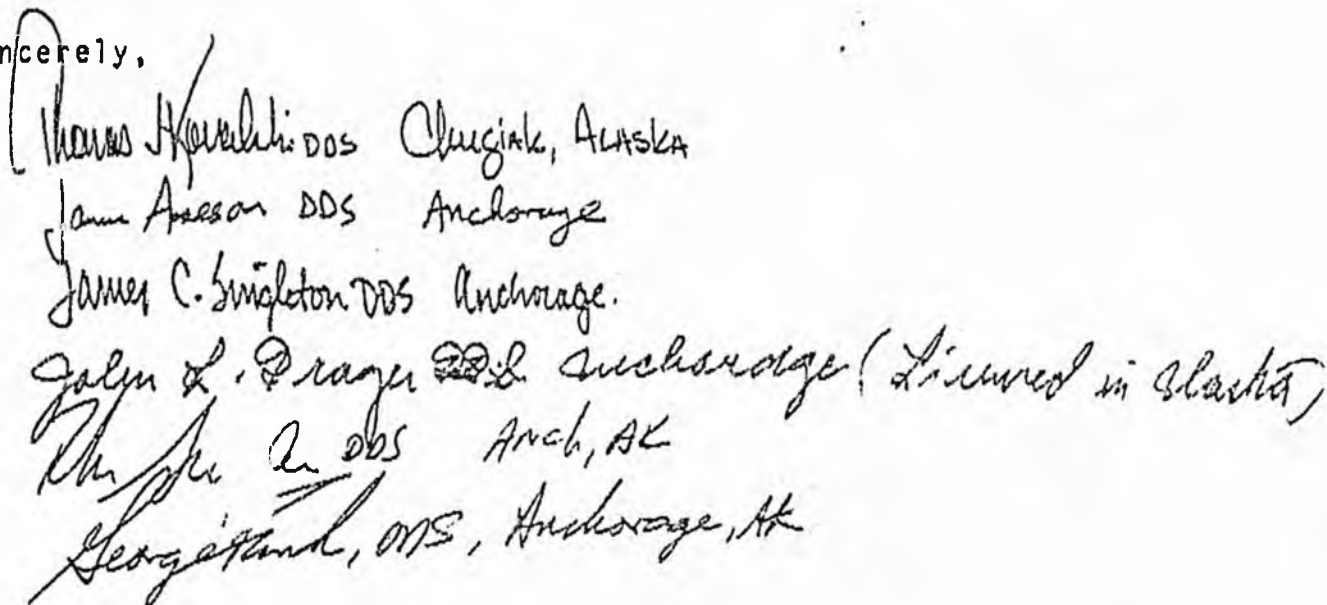 ncerely,
Thomas Kowalski DDS Chugiak, ALASKA
DDS Anchorage
James C. Singleton DDS Anchorage.
John L. DDS Anchorage (Licensed in Alaska)
DDS Anch, AK
George Anchorage, AK